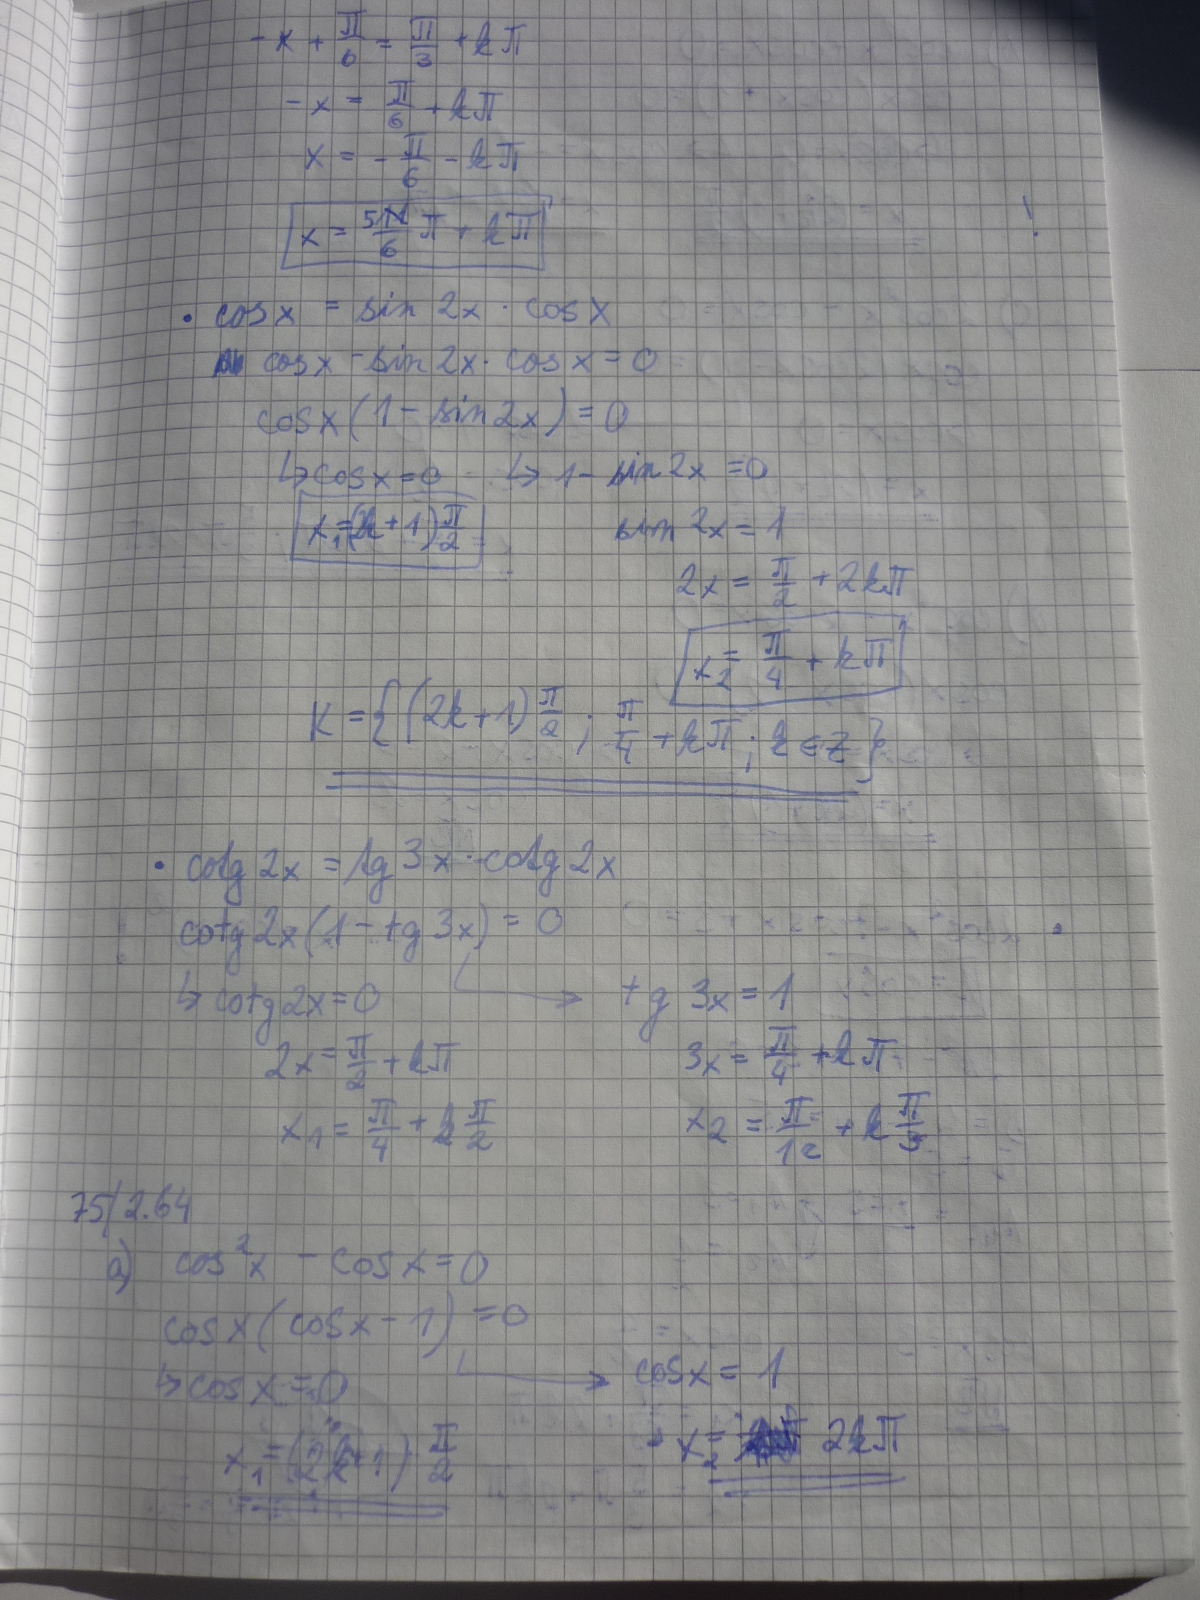 -x + π/6 = π/3 + kπ
-x = π/6 + kπ
x = -π/6 - kπ
x = 5/6 π + kπ
• cosx = sin 2x · cosx
cosx - sin 2x · cosx = 0
cosx (1 - sin 2x) = 0
↳ cosx = 0 ↳ 1 - sin 2x = 0
x₁ = (2k + 1) π/2 sin 2x = 1
2x = π/2 + 2kπ
x₂ = π/4 + kπ
K = { (2k+1) π/2 ; π/4 + kπ ; k ∈ Z }
• cotg 2x = tg 3x · cotg 2x
cotg 2x (1 - tg 3x) = 0
↳ cotg 2x = 0 → tg 3x = 1
2x = π/2 + kπ 3x = π/4 + kπ
x₁ = π/4 + k π/2 x₂ = π/12 + k π/3
75/2.64
a) cos²x - cosx = 0
cosx (cosx - 1) = 0
↳ cosx = 0 → cosx = 1
x₁ = (2k+1) · π/2 x₂ = 2kπ